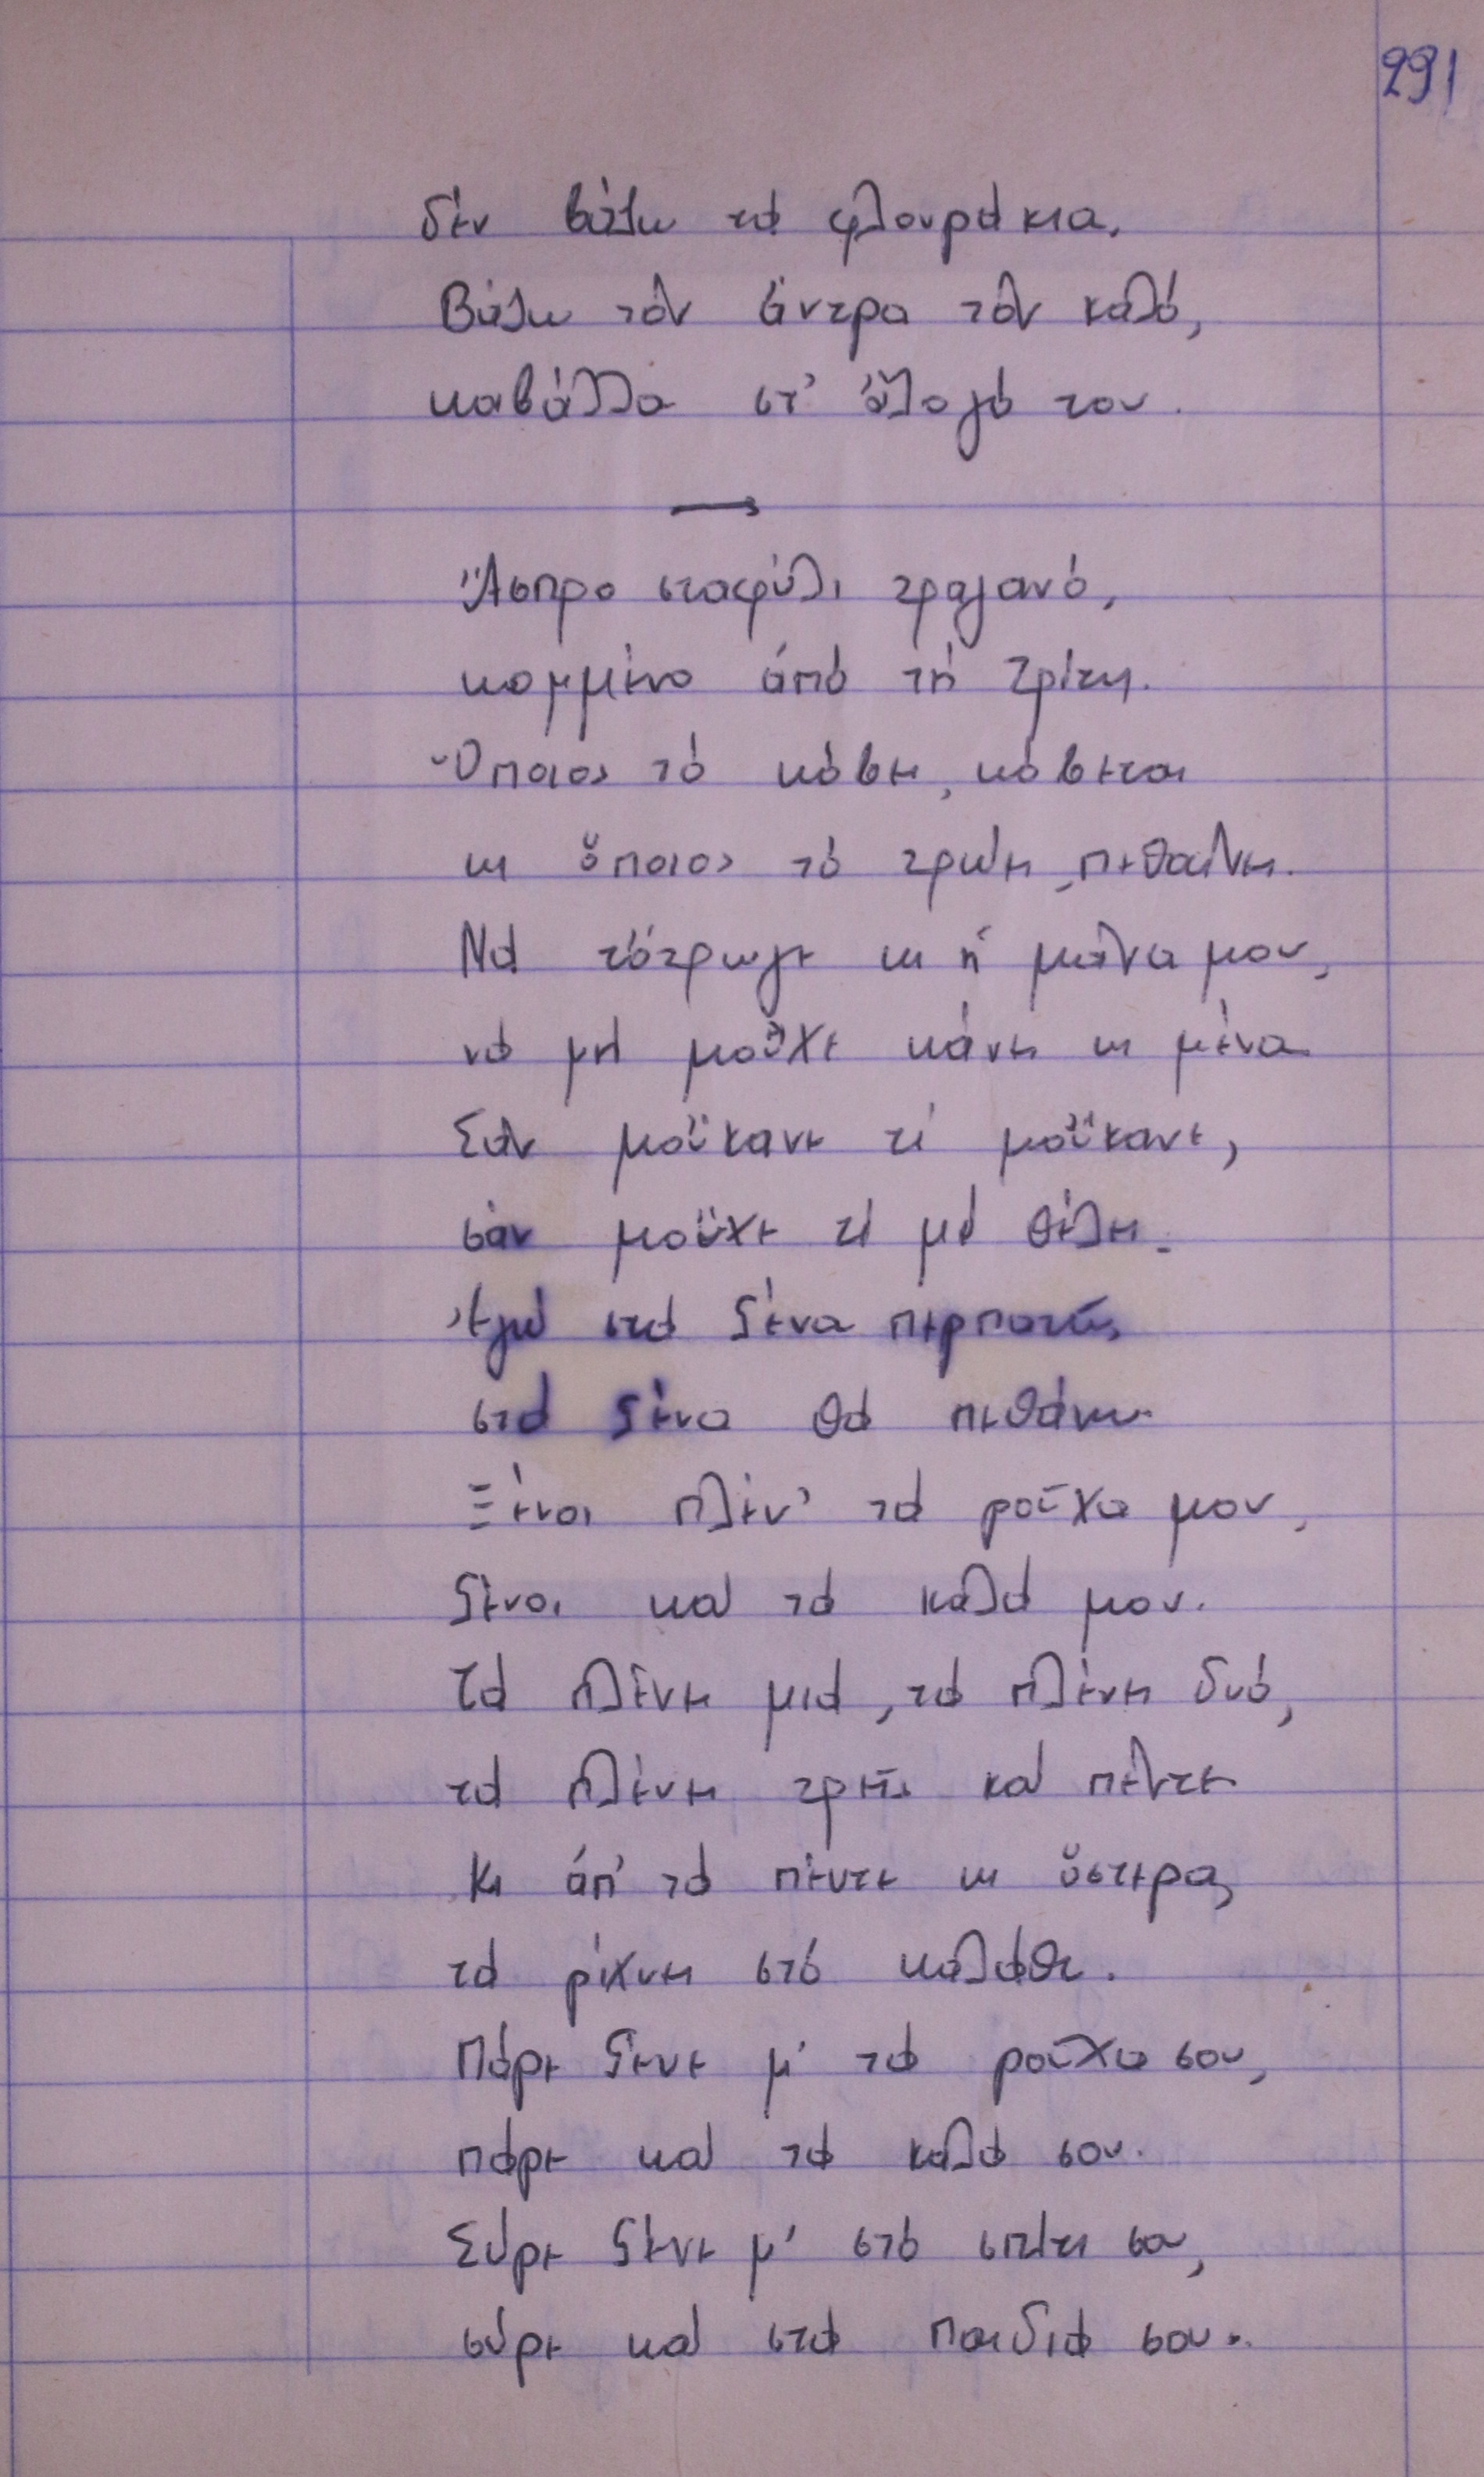 291
δέν βάζω τά φλουράκια,
Βάζω τόν ἄντρα τόν καλό,
καβάλλα στ' ἄλογό του.
Ἄσπρο σταφύλι τραγανό,
κομμένο ἀπό τή Τρίτη.
Ὅποιος τό κόβει, κόβεται
κι ὅποιος τό τρώει, πεθαίνει.
Νά τὄτρωγε κι ἡ μάνα μου,
νά μή μοὖχε κάνει κι μένα
Σάν μοὔκανε τί μοὔκανε,
σάν μοὖχε τί μέ θέλει.
Ἐγώ στά ξένα περπατῶ,
στά ξένα θά πεθάνω.
Ξένοι πλέν' τά ροῦχα μου,
ξένοι καί τά καλά μου.
Τά πλένει μιά, τά πλένει δυό,
τά πλένει τρεῖς καί πέντε
Κι ἀπ' τά πέντε κι ὕστερα,
τά ρίχνει στό καλάθι.
Πάρε ξένε μ' τά ροῦχα σου,
πάρε καί τά καλά σου.
Σύρε ξένε μ' στό σπίτι σου,
σύρε καί στά παιδιά σου.